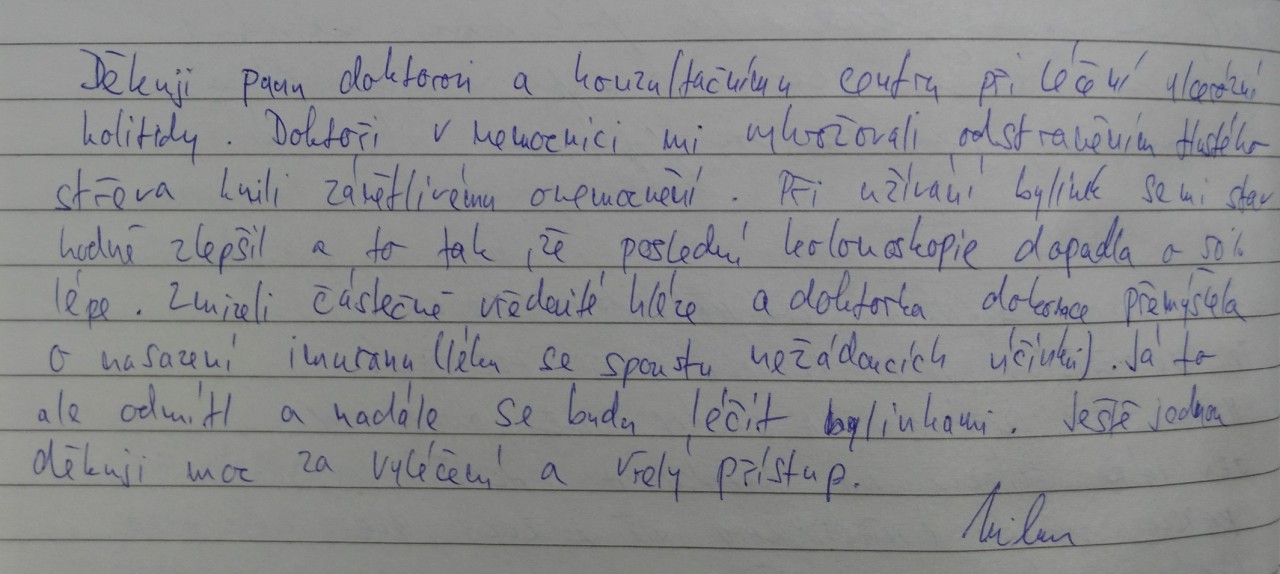 Děkuji panu doktorovi a konzultačnímu centru při léčení ulcerózní
kolitidy. Doktoři v nemocnici mi vyhrožovali odstraněním tlustého
střeva kvůli zánětlivému onemocnění. Při užívání bylinek se mi stav
hodně zlepšil a to tak, že poslední kolonoskopie dopadla o 50%
lépe. Zmizeli částečně vředovité hlíze a doktorka dokonce přemýšlela
o nasazení imuranu (léku se spoustu nežádoucích účinků). Já to
ale odmítl a nadále se budu léčit bylinkami. Ještě jednou
děkuji moc za vyléčení a vřelý přístup.
Milan